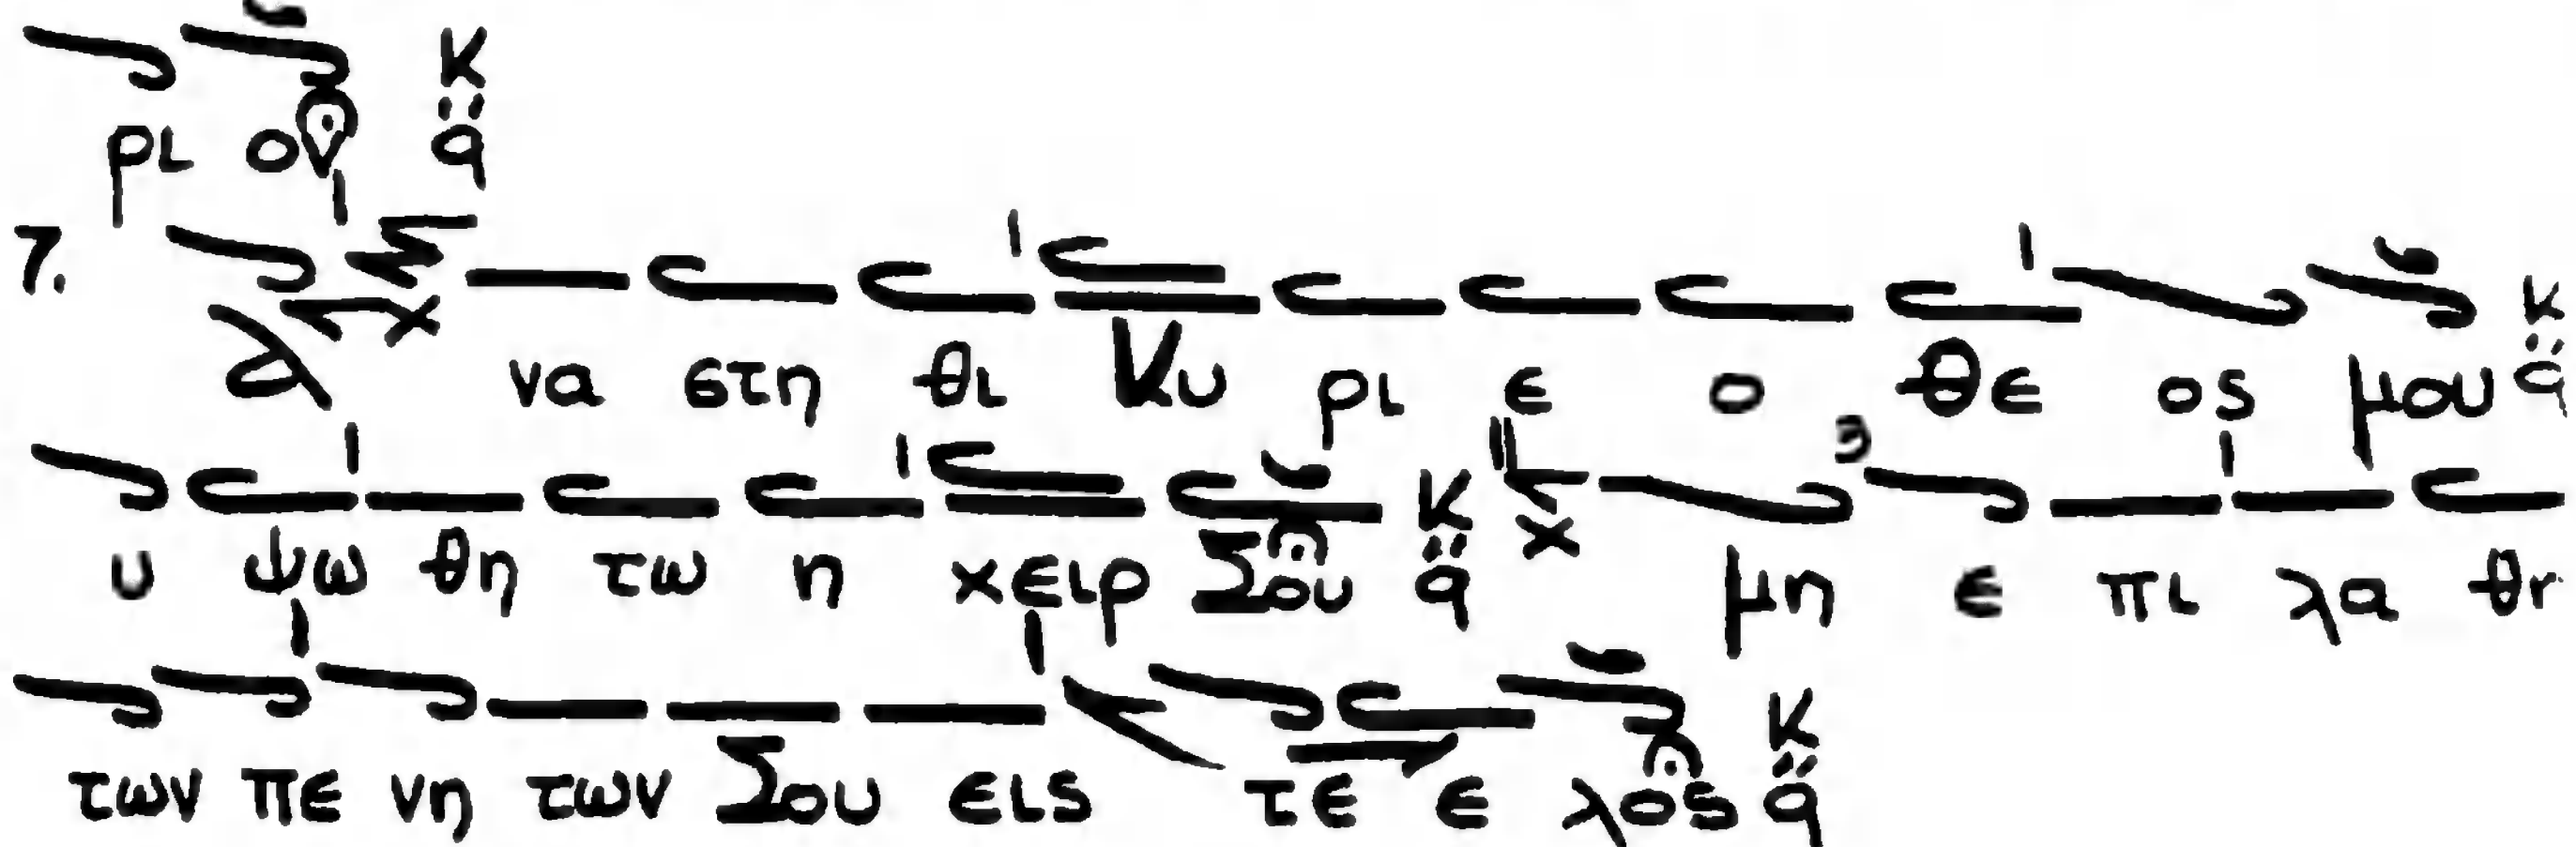 ρι ον κ q
7. Α να στη θι Κυ ρι ε ο Θε ος μου κ q
υ ψω θη τω η χειρ Σου κ q μη ε πι λα θη
των πε νη των Σου εις τε ε λος κ q